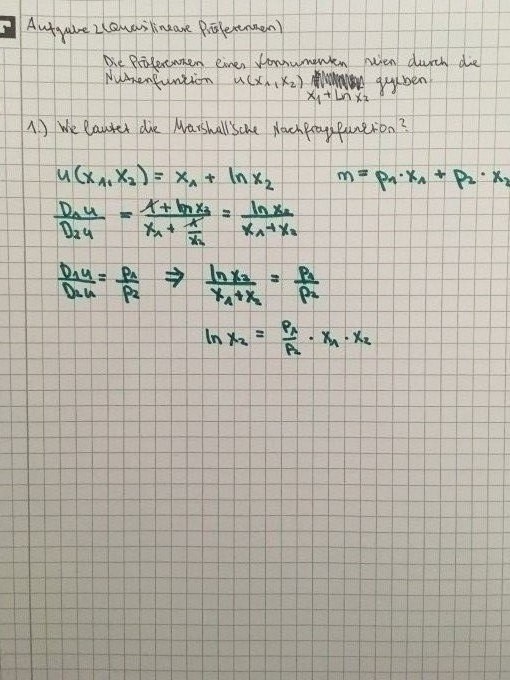 Aufgabe 2 (Quasilineare Präferenzen)
Die Präferenzen eines Konsumenten seien durch die
Nutzenfunktion u(x₁, x₂) gegeben.
x₁ + ln x₂
1.) Wie lautet die Marshall'sche Nachfragefunktion?
u(x₁, x₂) = x₁ + ln x₂ m = p₁ · x₁ + p₂ · x₂
D₁u / D₂u = (1 + ln x₂) / (x₁ + 1/x₂) = ln x₂ / (x₁ + x₂)
D₁u / D₂u = p₁ / p₂ ⇒ ln x₂ / (x₁ + x₂) = p₁ / p₂
ln x₂ = p₁ / p₂ · x₁ · x₂